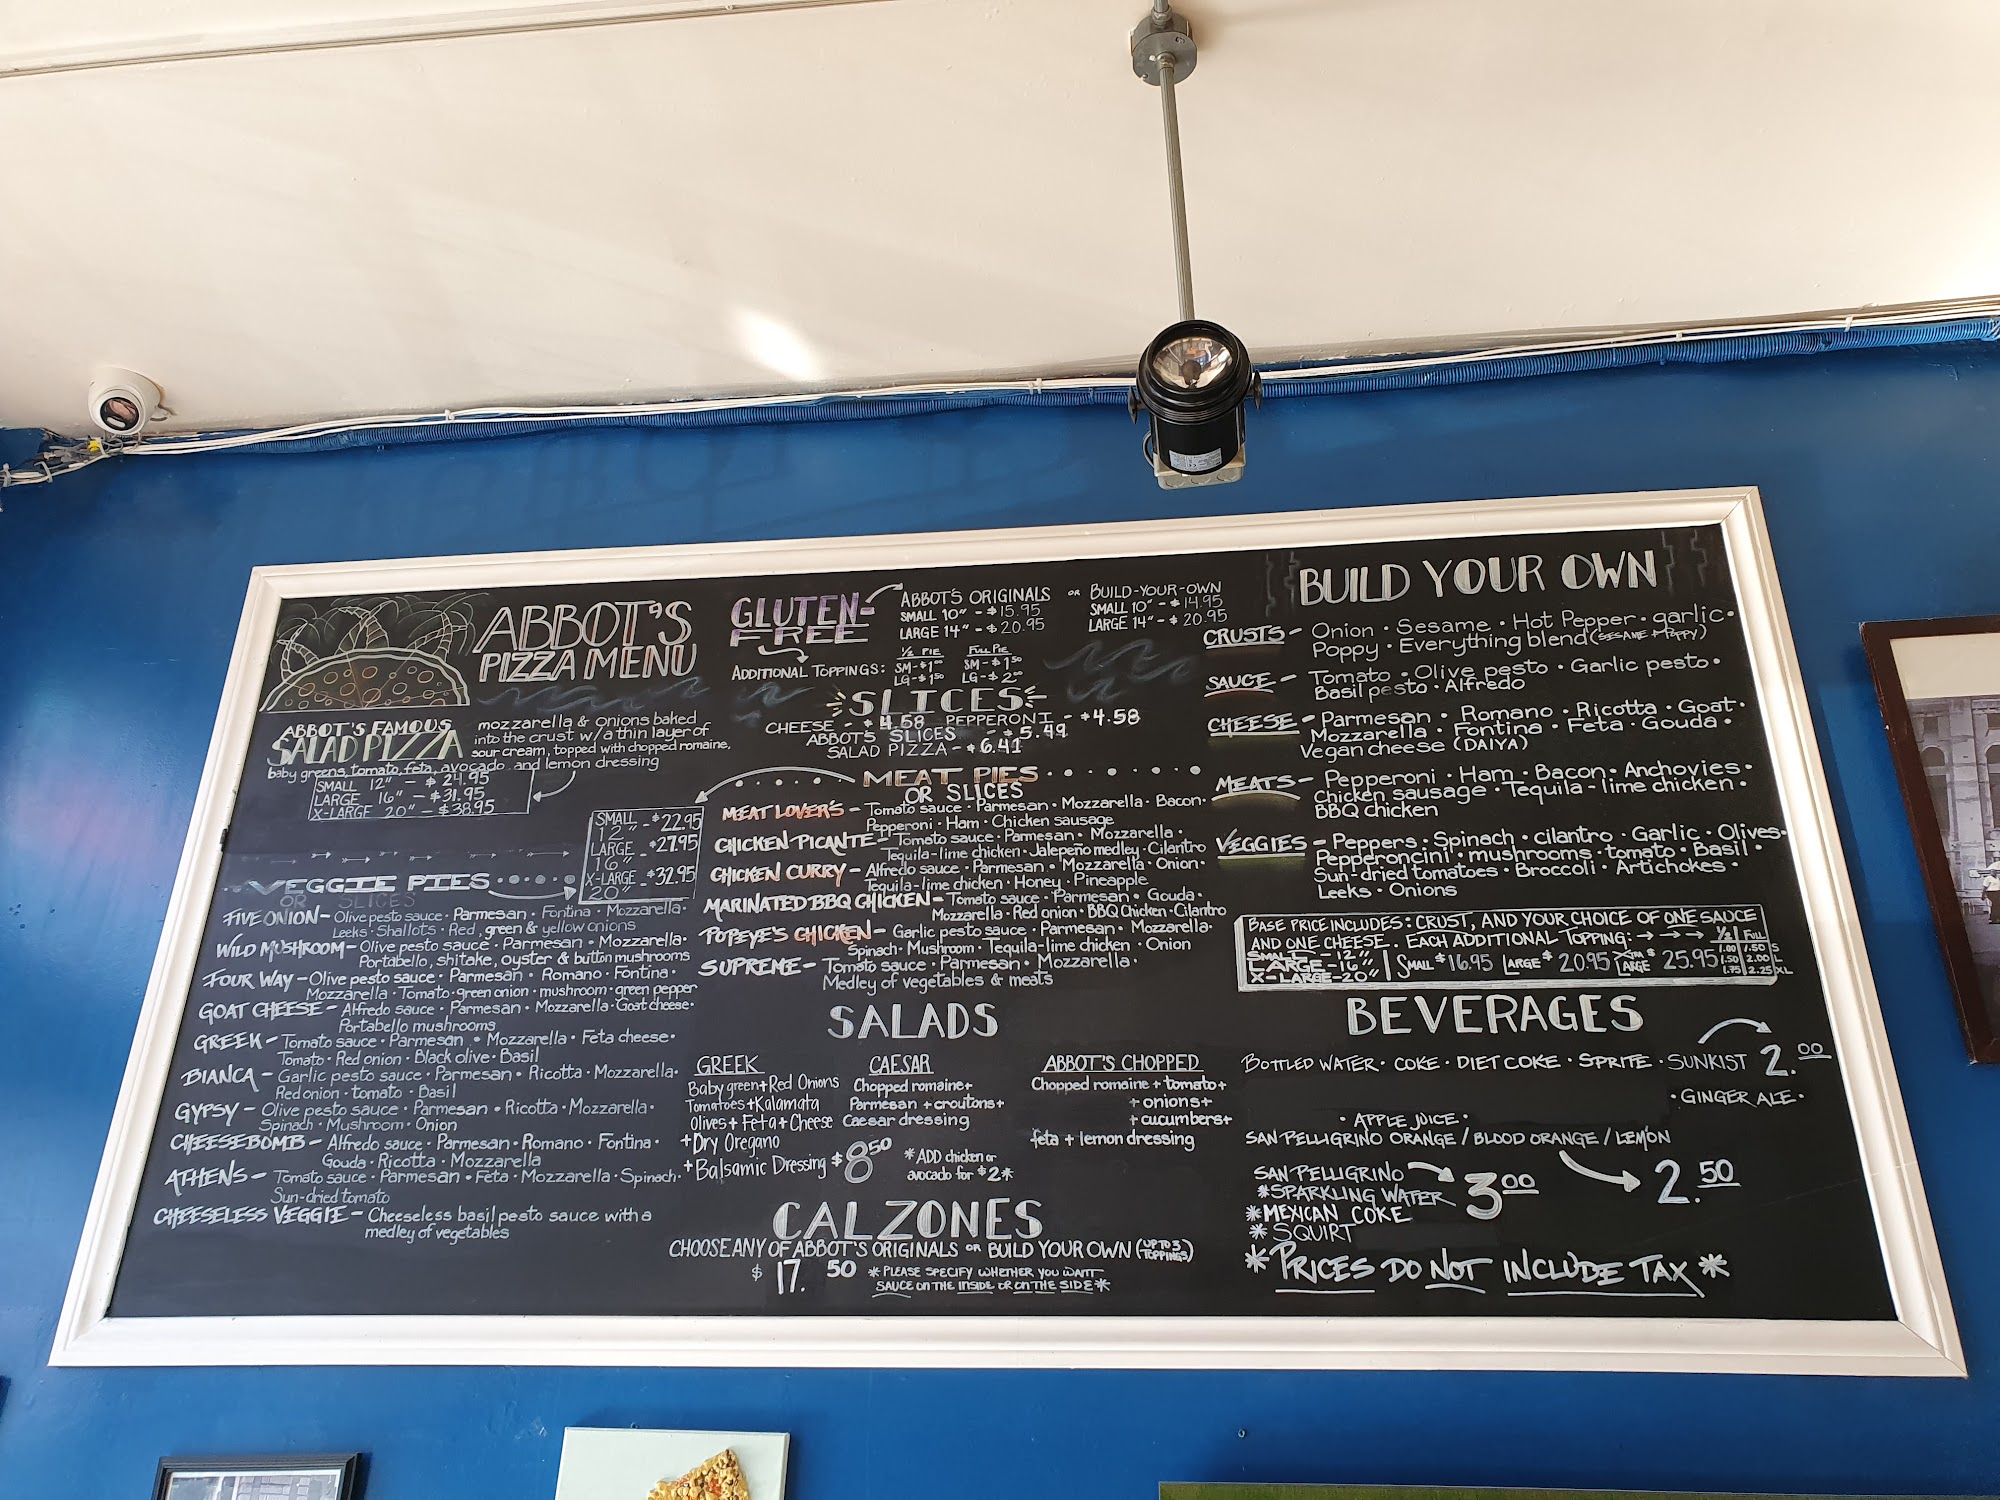 ABBOT'S
PIZZA MENU
ABBOT'S FAMOUS
SALAD PIZZA
mozzarella & onions baked
into the crust w/a thin layer of
sour cream, topped with chopped romaine,
baby greens, tomato, feta, avocado and lemon dressing
SMALL 12" - $24.95
LARGE 16" - $31.95
X-LARGE 20" - $38.95
SMALL 12" - $22.95
LARGE 16" - $27.95
X-LARGE 20" - $32.95
VEGGIE PIES
OR SLICES
FIVE ONION - Olive pesto sauce · Parmesan · Fontina · Mozzarella ·
Leeks · Shallots · Red, green & yellow onions
WILD MUSHROOM - Olive pesto sauce · Parmesan · Mozzarella ·
Portabello, shitake, oyster & button mushrooms
FOUR WAY - Olive pesto sauce · Parmesan · Romano · Fontina ·
Mozzarella · Tomato · green onion · mushroom · green pepper
GOAT CHEESE - Alfredo sauce · Parmesan · Mozzarella · Goat cheese ·
Portabello mushrooms
GREEK - Tomato sauce · Parmesan · Mozzarella · Feta cheese ·
Tomato · Red onion · Black olive · Basil
BIANCA - Garlic pesto sauce · Parmesan · Ricotta · Mozzarella ·
Red onion · tomato · Basil
GYPSY - Olive pesto sauce · Parmesan · Ricotta · Mozzarella ·
Spinach · Mushroom · Onion
CHEESEBOMB - Alfredo sauce · Parmesan · Romano · Fontina ·
Gouda · Ricotta · Mozzarella
ATHENS - Tomato sauce · Parmesan · Feta · Mozzarella · Spinach ·
Sun-dried tomato
CHEESELESS VEGGIE - Cheeseless basil pesto sauce with a
medley of vegetables
GLUTEN-
FREE
ABBOT'S ORIGINALS OR BUILD-YOUR-OWN
SMALL 10" - $15.95 SMALL 10" - $14.95
LARGE 14" - $20.95 LARGE 14" - $20.95
ADDITIONAL TOPPINGS: 1/2 PIE FULL PIE
SM - $1.00 SM - $1.50
LG - $1.50 LG - $2.00
SLICES
CHEESE - $4.58 PEPPERONI - $4.58
ABBOT'S SLICES - $5.49
SALAD PIZZA - $6.41
MEAT PIES
OR SLICES
MEAT LOVER'S - Tomato sauce · Parmesan · Mozzarella · Bacon ·
Pepperoni · Ham · Chicken sausage
CHICKEN PICANTE - Tomato sauce · Parmesan · Mozzarella ·
Tequila-lime chicken · Jalepeño medley · Cilantro
CHICKEN CURRY - Alfredo sauce · Parmesan · Mozzarella · Onion ·
Tequila-lime chicken · Honey · Pineapple
MARINATED BBQ CHICKEN - Tomato sauce · Parmesan · Gouda ·
Mozzarella · Red onion · BBQ Chicken · Cilantro
POPEYE'S CHICKEN - Garlic pesto sauce · Parmesan · Mozzarella ·
Spinach · Mushroom · Tequila-lime chicken · Onion
SUPREME - Tomato sauce · Parmesan · Mozzarella ·
Medley of vegetables & meats
SALADS
GREEK
Baby green + Red Onions
Tomatoes + Kalamata
Olives + Feta + Cheese
+ Dry Oregano
+ Balsamic Dressing
CAESAR
Chopped romaine +
Parmesan + croutons +
Caesar dressing
ABBOT'S CHOPPED
Chopped romaine + tomato +
+ onions +
+ cucumbers +
feta + lemon dressing
$8.50
*ADD chicken or
avocado for $2*
CALZONES
CHOOSE ANY OF ABBOT'S ORIGINALS OR BUILD YOUR OWN (UP TO 3 TOPPINGS)
$17.50 *PLEASE SPECIFY WHETHER YOU WANT
SAUCE ON THE INSIDE OR ON THE SIDE*
BUILD YOUR OWN
CRUSTS - Onion · Sesame · Hot Pepper · garlic ·
Poppy · Everything blend (SESAME + POPPY)
SAUCE - Tomato · Olive pesto · Garlic pesto ·
Basil pesto · Alfredo
CHEESE - Parmesan · Romano · Ricotta · Goat ·
Mozzarella · Fontina · Feta · Gouda ·
Vegan cheese (DAIYA)
MEATS - Pepperoni · Ham · Bacon · Anchovies ·
Chicken sausage · Tequila-lime chicken ·
BBQ chicken
VEGGIES - Peppers · Spinach · cilantro · Garlic · Olives ·
Pepperoncini · mushrooms · tomato · Basil ·
Sun-dried tomatoes · Broccoli · Artichokes ·
Leeks · Onions
BASE PRICE INCLUDES: CRUST, AND YOUR CHOICE OF ONE SAUCE
AND ONE CHEESE.. EACH ADDITIONAL TOPPING: → → → 1/2 FULL
SMALL - 12"
LARGE - 16"
X-LARGE - 20"
SMALL $16.95 LARGE $20.95 XTRA LARGE $25.95
1.00 1.50 S
1.50 2.00 L
1.75 2.25 XL
BEVERAGES
BOTTLED WATER · COKE · DIET COKE · SPRITE · SUNKIST 2.00
· GINGER ALE ·
· APPLE JUICE ·
SAN PELLIGRINO ORANGE / BLOOD ORANGE / LEMON
2.50
SAN PELLIGRINO
*SPARKLING WATER
*MEXICAN COKE
*SQUIRT
3.00
*PRICES DO NOT INCLUDE TAX*